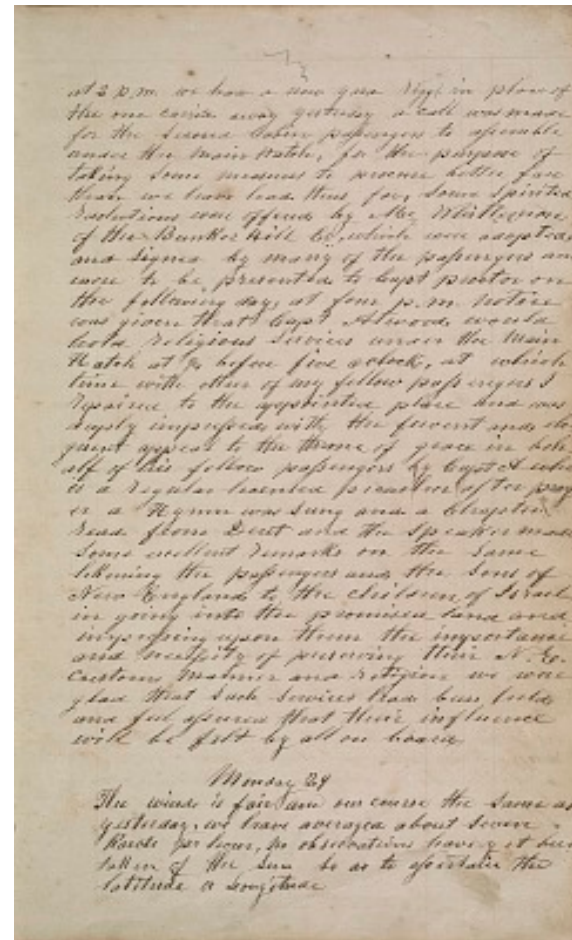 at 2 p.m. we have a new gaff rigged in place of
the one carried away yesterday a call was made
for the second Cabin passengers to assemble
under the Main Hatch, for the purpose of
taking some measures to procure better fare
than we have had thus far, some spirited
resolutions were offered by Mr.
of the Bunker Hill Co, which were adopted,
and signed by many of the passengers and
were to be presented to Capt Proctor on
the following day, at four p.m. notice
was given that Capt Atwood would
hold religious services under the Main
Hatch at ¼ before five oclock, at which
time with other of my fellow passengers I
repaired to the appointed place and was
deeply impressed with the fervent and elo
quent appeal to the throne of grace in beh
alf of his fellow passengers by Capt A who
is a regular licented preacher after pray
er a Hymn was sung and a Chapter
read from Deut and the speaker made
some excellent remarks on the same
likening the passengers and the Sons of
New England to the children of Israel
in going into the promised land and
impressing upon them the importance
and necessity of preserving their N. E.
Customs Manner and religion we were
glad that such services had been held
and feel assured that their influence
will be felt by all on board
Monday 29
The wind is fair and our course the same as
yesterday, we have averaged about seven
Knots per hour, no observations have yet been
taken of the Sun so as to assertain the
latitude or longitude